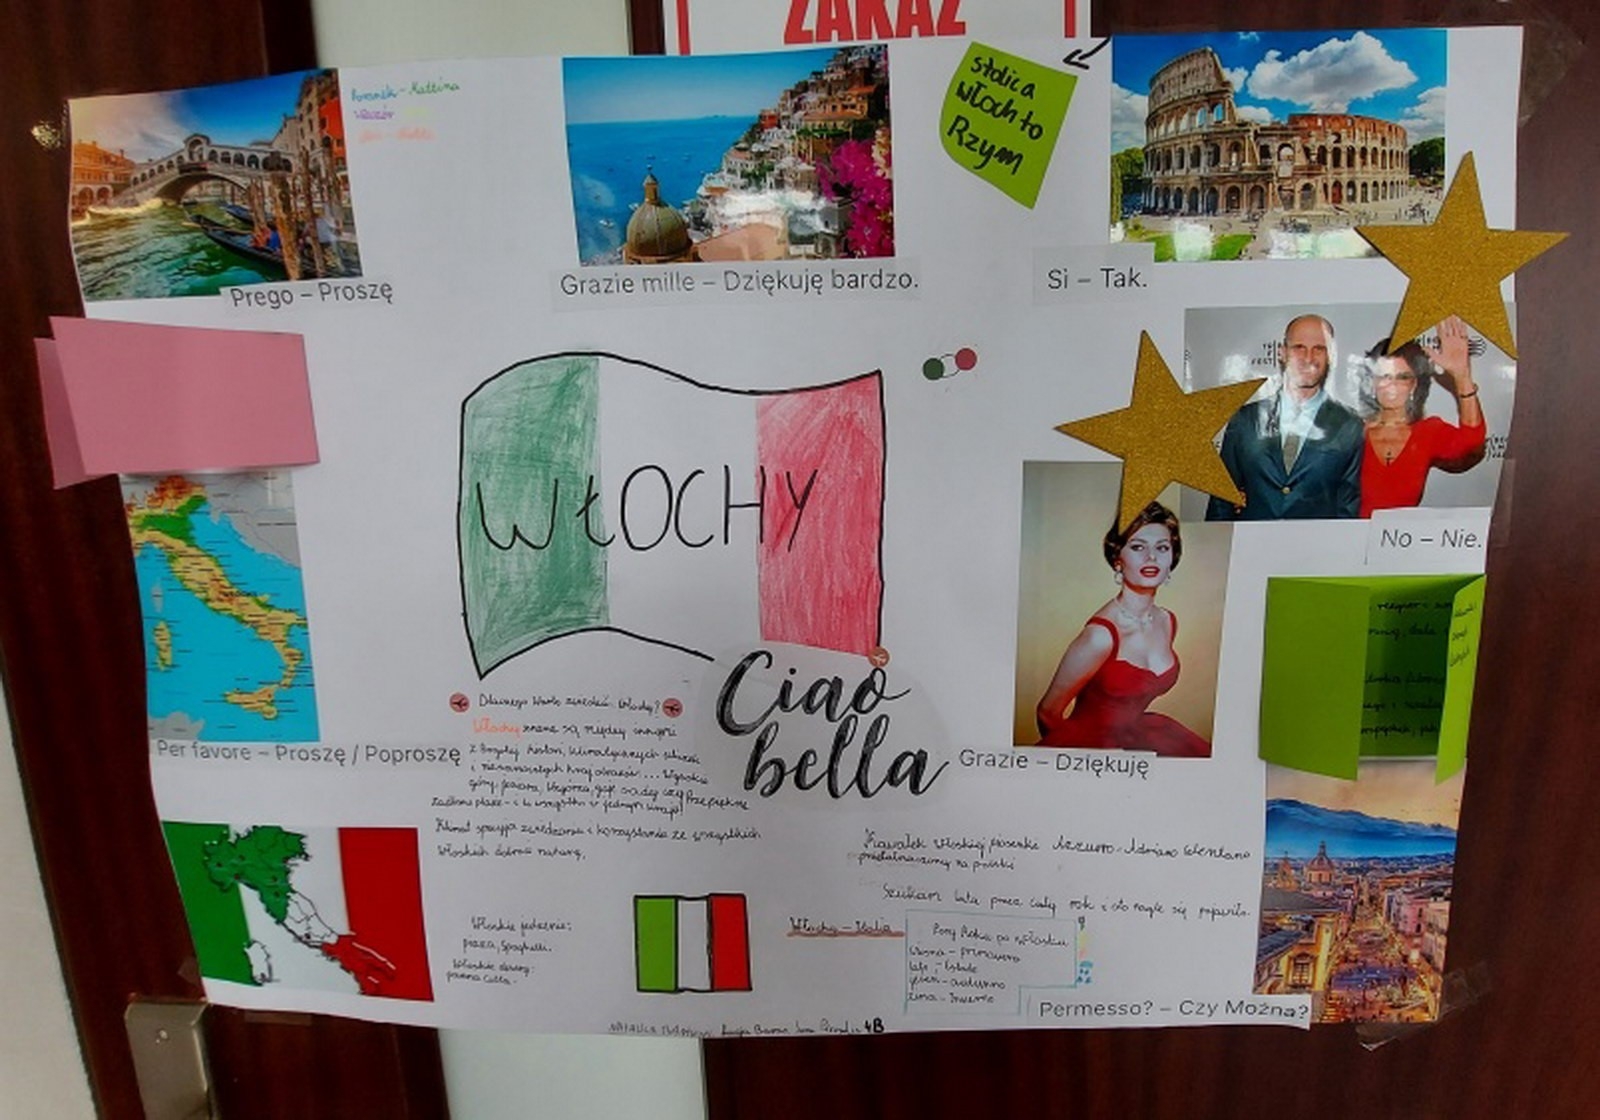 ZAKAZ
Poranek - Mattina
Wieczór
stolica
włoch to
Rzym
Prego – Proszę
Grazie mille – Dziękuję bardzo.
Si – Tak.
WŁOCHY
No – Nie.
Ciao
bella
Per favore – Proszę / Poproszę
Grazie – Dziękuję
Dlaczego Warto zwiedzić Włochy?
Włochy znane są między innymi
z bogatej histori, klimatycznych
i niesamowitych krajobrazów... Wysokie
góry, jeziora, wzgórza, gaje czy Przepiękne
plaże - i to wszystko w jednym kraju!
Klimat sprzyja zwiedzaniu i korzystaniu ze wszystkich
Włoskich dobrów natury,
Kawałek Włoskiej piosenki Azzurro - Adriano Celentano
przetłumaczony na polski
Szukam lata przez cały rok i oto nagle się pojawiło.
Włoskie jedzenie:
pizza, Spaghetti.
Włoskie desery:
panna cotta.
Włochy - Italia
Pory Roku po włosku
wiosna - primavera
lato - Estate
jesień - autunno
zima - Inverno
Permesso? – Czy Można?
4B